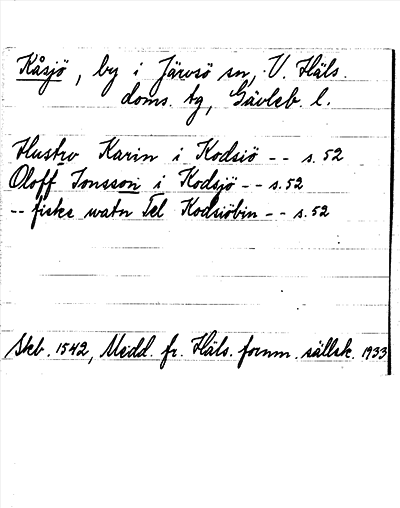 Kåsjö, by i Järvsö sn, V. Häls.
doms. tg, Gävleb. l.
Hustrv Karin i Kodsiö -- s. 52
Oloff Jonsson i Kodsjö -- s. 52
-- fiske watn Tel Kodsiöbin -- s. 52
Skb. 1542, Medd. fr. Häls. fornm. sällsk. 1933